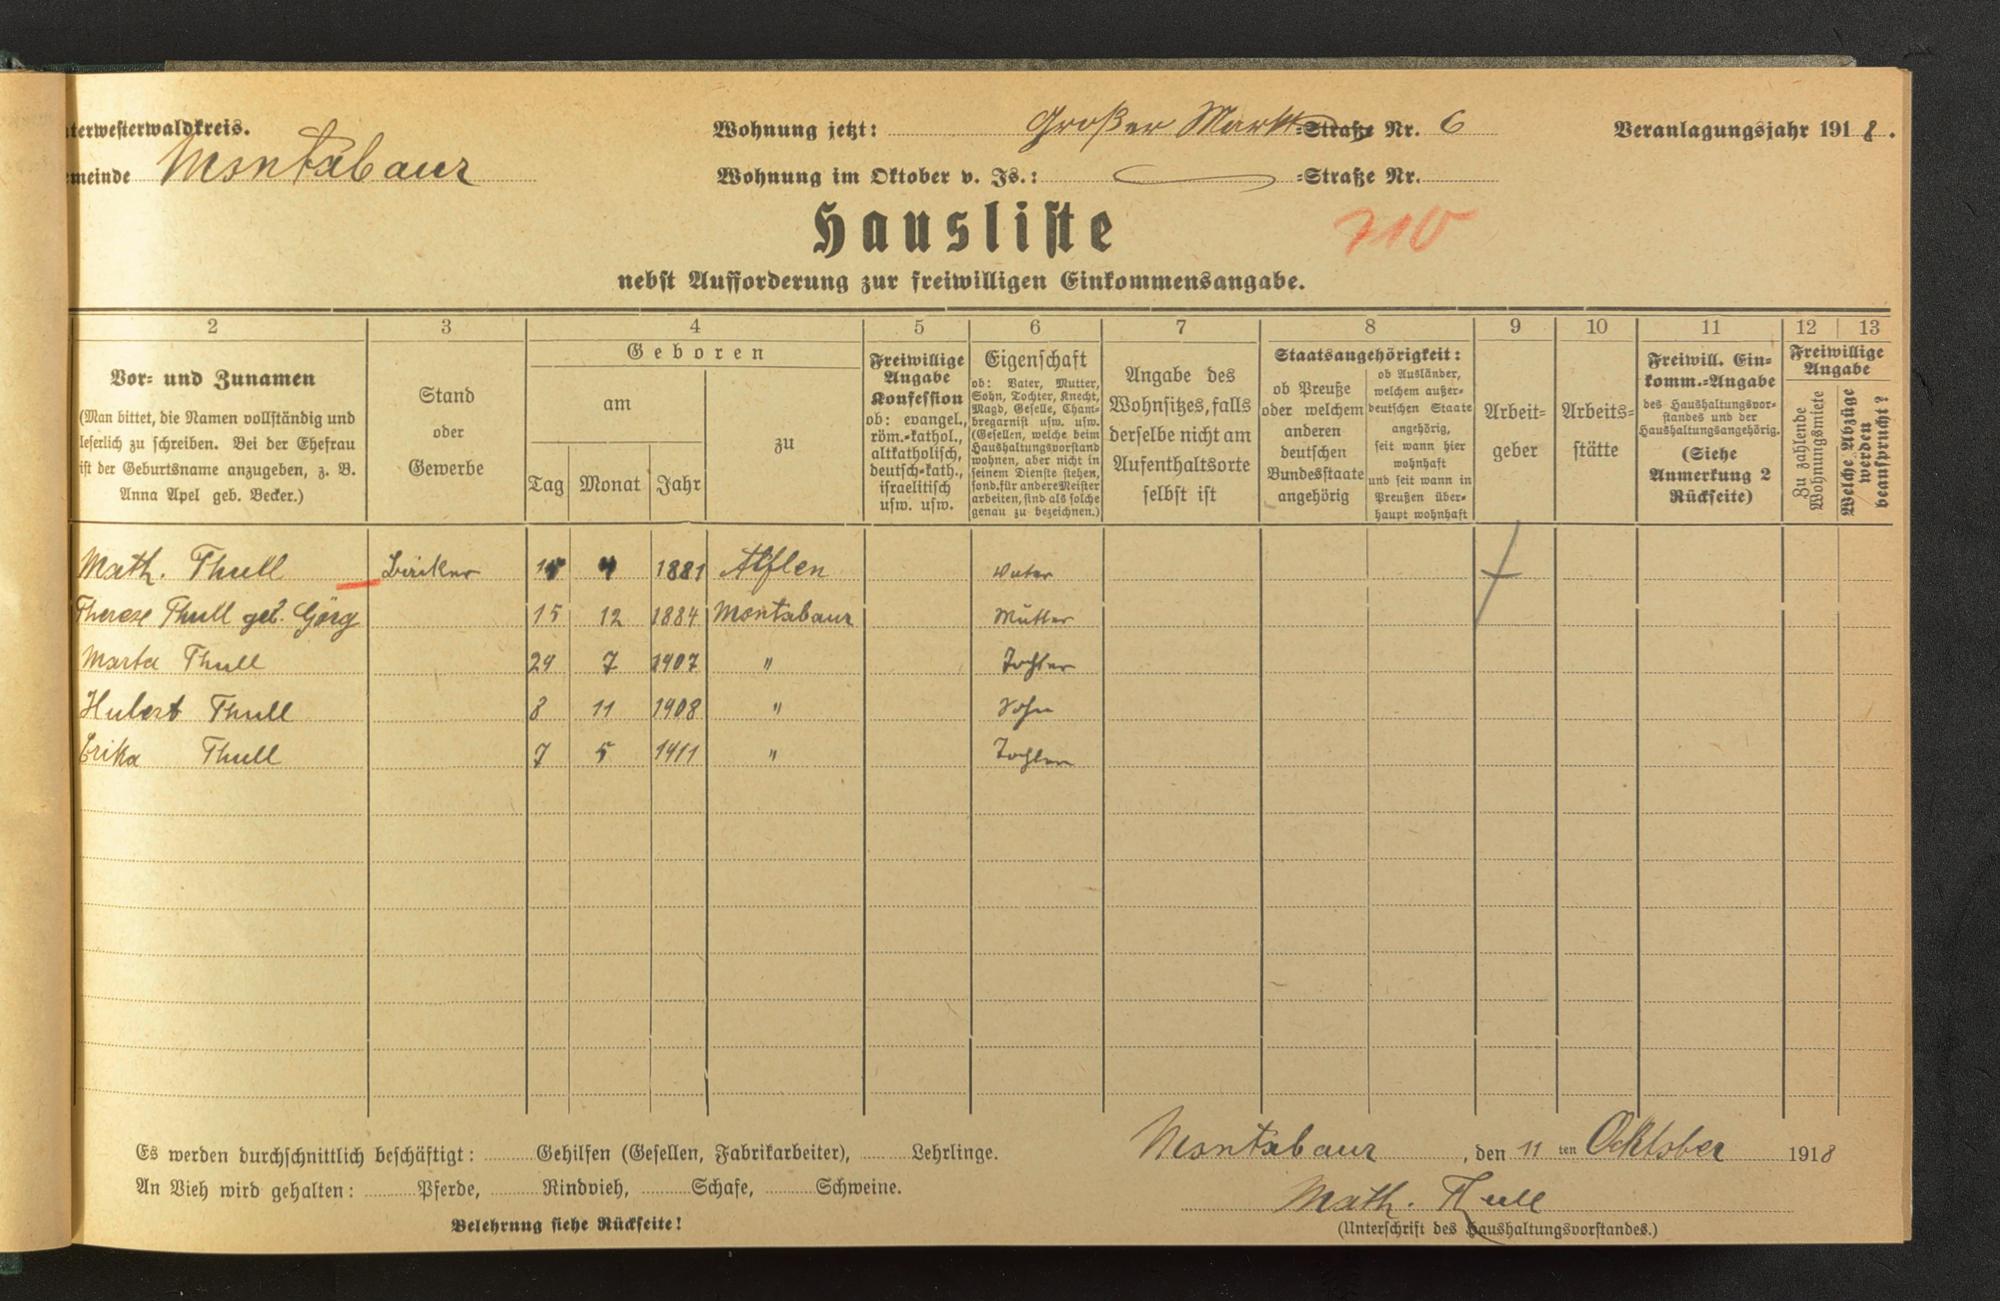 terwesterwaldkreis.
meinde Montabaur
Wohnung jetzt: Großer Markt =Straße Nr. 6
Wohnung im Oktober v. Js.: =Straße Nr.
Veranlagungsjahr 1918.
Hausliste
710
nebst Aufforderung zur freiwilligen Einkommensangabe.
2 3 4 5 6 7 8 9 10 11 12 13
Vor- und Zunamen
(Man bittet, die Namen vollständig und
leserlich zu schreiben. Bei der Ehefrau
ist der Geburtsname anzugeben, z. B.
Anna Apel geb. Becker.)
Stand
oder
Gewerbe
Geboren
am
Tag Monat Jahr
zu
Freiwillige
Angabe
Konfession
ob: evangel.,
röm.-kathol.,
altkatholisch,
deutsch-kath.,
israelitisch
usw. usw.
Eigenschaft
ob: Vater, Mutter,
Sohn, Tochter, Knecht,
Magd, Geselle, Cham-
bregarnist usw. usw.
(Gesellen, welche beim
Haushaltungsvorstand
wohnen, aber nicht in
seinem Dienste stehen,
sond. für andere Meister
arbeiten, sind als solche
genau zu bezeichnen.)
Angabe des
Wohnsitzes, falls
derselbe nicht am
Aufenthaltsorte
selbst ist
Staatsangehörigkeit:
ob Preuße
oder welchem
anderen
deutschen
Bundesstaate
angehörig
ob Ausländer,
welchem außer-
deutschen Staate
angehörig,
seit wann hier
wohnhaft
und seit wann in
Preußen über-
haupt wohnhaft
Arbeit-
geber
Arbeits-
stätte
Freiwill. Ein-
komm.-Angabe
des Haushaltungsvor-
standes und der
Haushaltungsangehörig.
(Siehe
Anmerkung 2
Rückseite)
Freiwillige
Angabe
Zu zahlende
Wohnungsmiete
Welche Abzüge
werden
beansprucht?
Math. Thull 1881 Alflen Vater
Therese Thull geb. Görg 15 12 1884 Montabaur Mutter
Marta Thull 24 7 1907 " Tochter
Hubert Thull 8 11 1908 " Sohn
Erika Thull 7 5 1911 " Tochter
Es werden durchschnittlich beschäftigt: Gehilfen (Gesellen, Fabrikarbeiter), Lehrlinge.
An Vieh wird gehalten: Pferde, Rindvieh, Schafe, Schweine.
Belehrung siehe Rückseite!
Montabaur, den 11 ten Oktober 1918
Math. Thull
(Unterschrift des Haushaltungsvorstandes.)